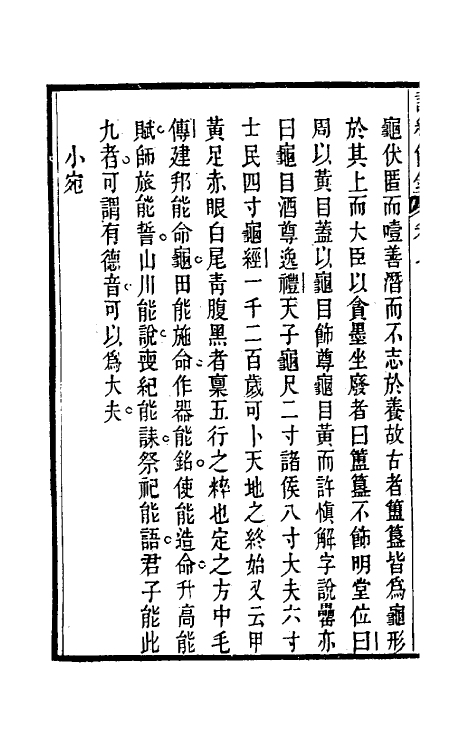 龜伏匿而噎善潛而不志於養故古者簠簋皆爲龜形
於其上而大臣以貪墨坐廢者曰簠簋不飾明堂位曰
周以黃目蓋以龜目飾尊龜目黃而許愼解字說罍亦
曰龜目酒尊逸禮天子龜尺二寸諸侯八寸大夫六寸
士民四寸龜經一千二百歲可卜天地之終始又云甲
黃足赤眼白尾靑腹黑者稟五行之粹也定之方中毛
傳建邦能命龜田能施命作器能銘使能造命升高能
賦師旅能誓山川能說喪紀能誄祭祀能語君子能此
九者可謂有德音可以爲大夫
小宛